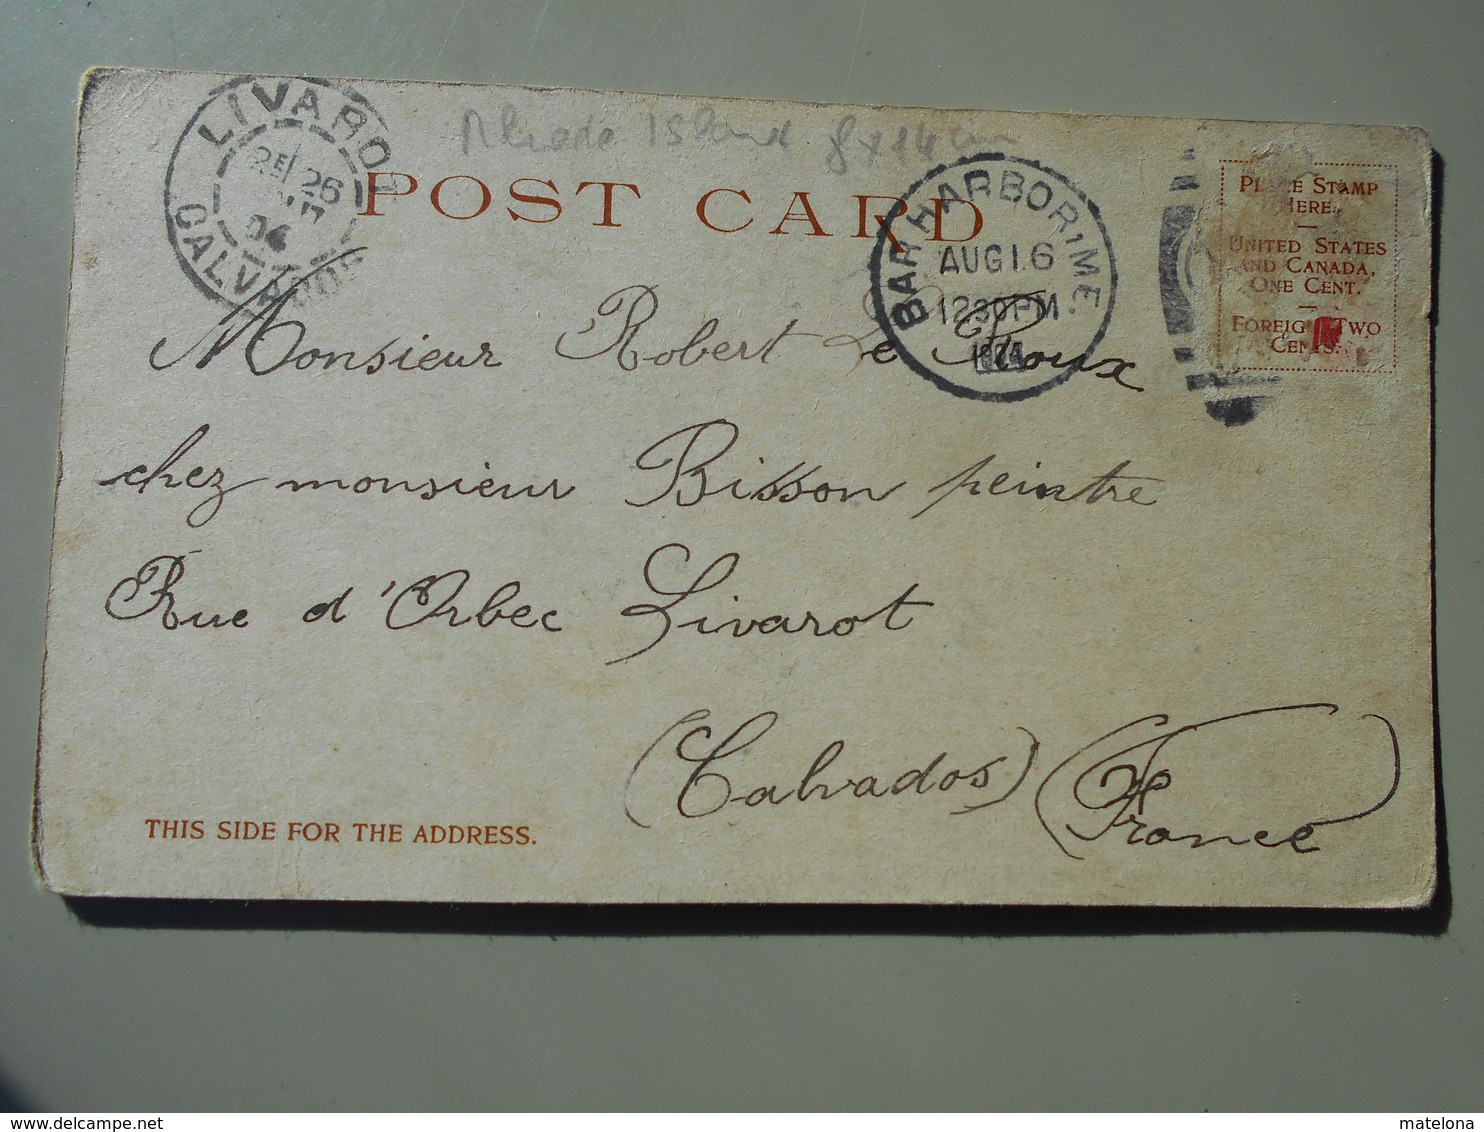 LIVAROT
26
04
CALVADOS
Rhode Island 8x14 cm
POST CARD
BAR HARBOR, ME.
AUG 16
1230PM
PLACE STAMP
HERE.
UNITED STATES
AND CANADA,
ONE CENT.
FOREIGN TWO
CENTS.
Monsieur Robert Le Roux
chez monsieur Bisson peintre
Rue d'Orbec Livarot
(Calvados) (France)
THIS SIDE FOR THE ADDRESS.
matelona